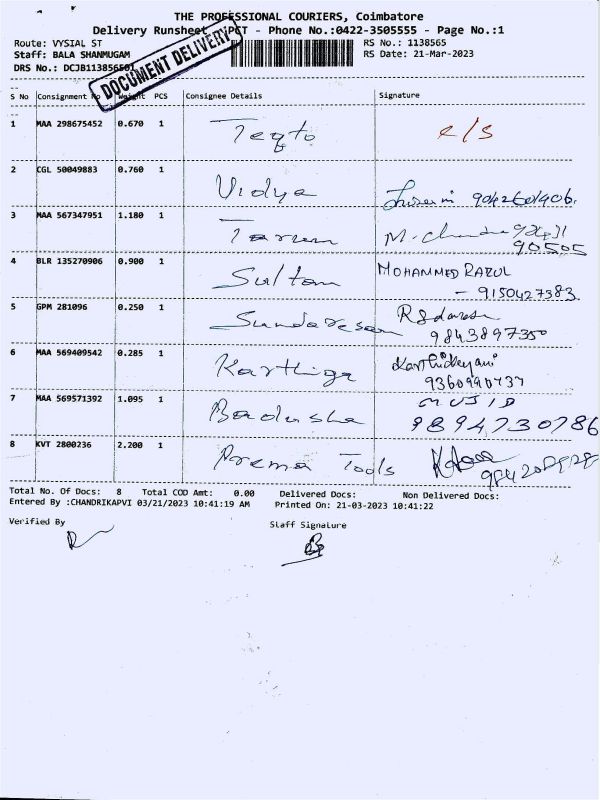 THE PROFESSIONAL COURIERS, Coimbatore
Delivery Runsheet PCT - Phone No.:0422-3505555 - Page No.:1
Route: VYSIAL ST RS No.: 1138565
Staff: BALA SHANMUGAM RS Date: 21-Mar-2023
DRS No.: DCJB113856501
DOCUMENT DELIVERY
S No Consignment No Weight PCS Consignee Details Signature
1 MAA 298675452 0.670 1 Teqto R/S
2 CGL 50049883 0.760 1 Vidya
3 MAA 567347951 1.180 1 90505
4 BLR 135270906 0.900 1 Sultan MOHAMMED RAZUL
- 9150427383
5 GPM 281096 0.250 1 Sundaresan
9843897350
6 MAA 569409542 0.285 1 Karthiga Karthikeyani
7 MAA 569571392 1.095 1 Badusha MUJIB
9894730786
8 KVT 2800236 2.200 1 Prema Tools
Total No. Of Docs: 8 Total COD Amt: 0.00 Delivered Docs: Non Delivered Docs:
Entered By :CHANDRIKAPVI 03/21/2023 10:41:19 AM Printed On: 21-03-2023 10:41:22
Verified By Staff Signature